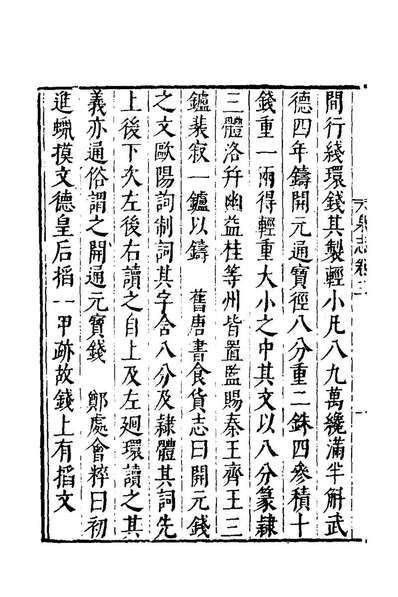 泉志卷三
一
間行綫環錢其製輕小凡八九萬纔滿半斛武
德四年鑄開元通寶徑八分重二銖四參積十
錢重一兩得輕重大小之中其文以八分篆隸
三體洛幷幽益桂等州皆置監賜秦王齊王三
鑪裴寂一鑪以鑄　舊唐書食貨志曰開元錢
之文歐陽詢制詞其字含八分及隸體其詞先
上後下次左後右讀之自上及左廻環讀之其
義亦通俗謂之開通元寶錢　鄭處會粹曰初
進蠟摸文德皇后搯一甲跡故錢上有搯文